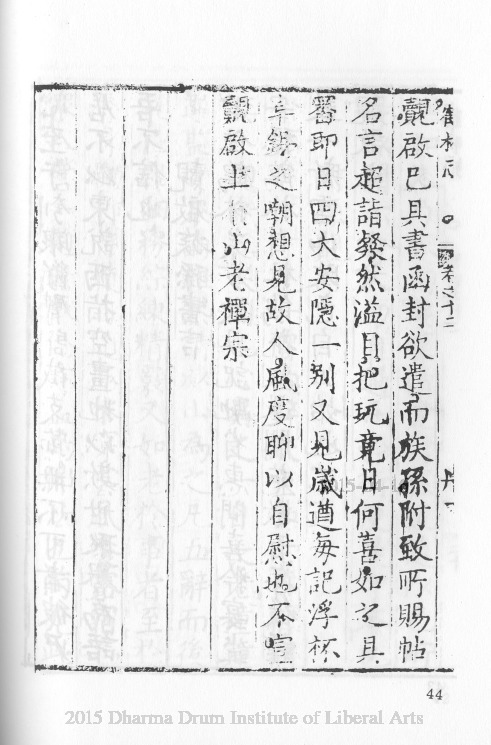 覿啟已具書函封欲遣而族孫附致所賜帖
名言超詣粲然溢目把玩竟日何喜如之具
審即日四大安隱一別又見歲遒每記浮杯
之嘲想見故人風度聊以自慰也不宣
覿啟上 山老禪宗
44
2015 Dharma Drum Institute of Liberal Arts